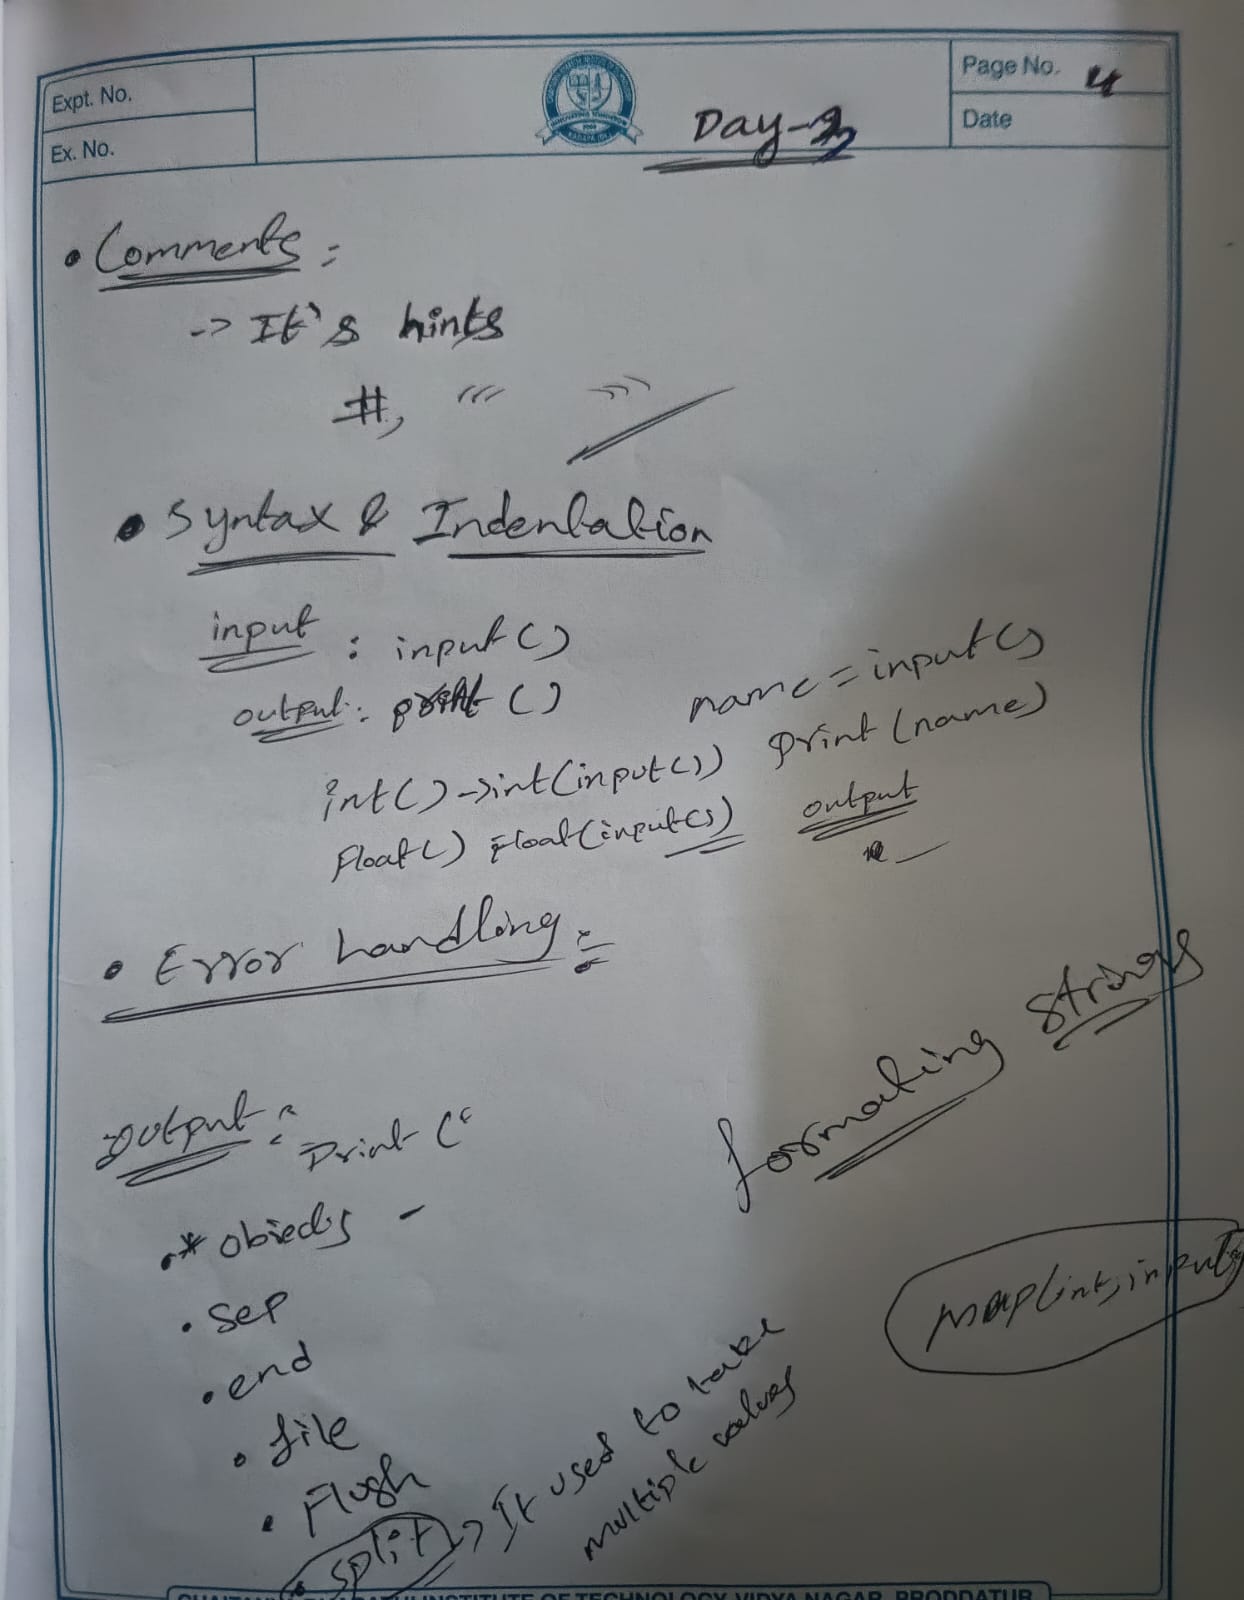 Expt. No.
Ex. No.
Page No. 4
Date
Day-
• Comments :
-> It's hints
#, ''' '''
• Syntax & Indentation
input : input()
output : print()
name = input()
print(name)
int() -> int(input())
Float() Float(input())
output
• Error handling :
Output : Print ("
• * objects -
• Sep
• end
• file
• Flush
• split -> It used to take
multiple values
formating strings
map(int, input
INSTITUTE OF TECHNOLOGY, VIDYA NAGAR, PRODDATUR